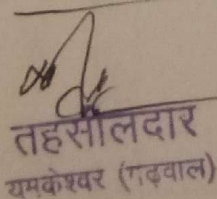 तहसीलदार
यमकेश्वर (गढ़वाल)